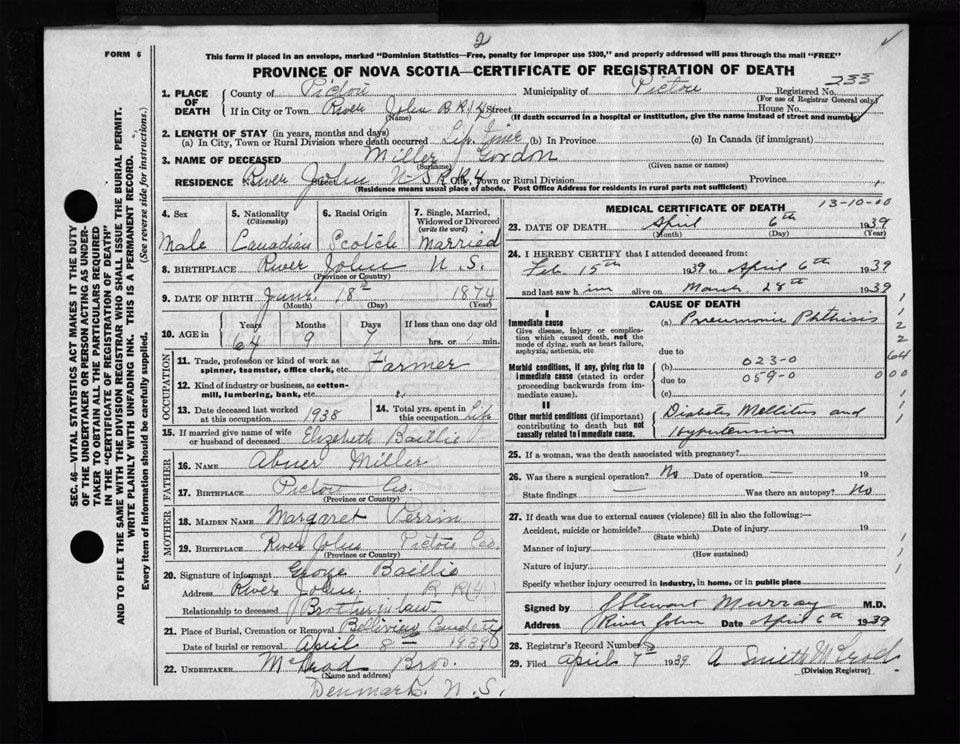 2
FORM 6
This form if placed in an envelope, marked "Dominion Statistics—Free, penalty for improper use $300," and properly addressed will pass through the mail "FREE"
PROVINCE OF NOVA SCOTIA—CERTIFICATE OF REGISTRATION OF DEATH
SEC. 46—VITAL STATISTICS ACT MAKES IT THE DUTY
OF THE UNDERTAKER OR PERSON ACTING AS UNDER-
TAKER TO OBTAIN ALL THE PARTICULARS REQUIRED
IN THE "CERTIFICATE OF REGISTRATION OF DEATH"
AND TO FILE THE SAME WITH THE DIVISION REGISTRAR WHO SHALL ISSUE THE BURIAL PERMIT.
WRITE PLAINLY WITH UNFADING INK. THIS IS A PERMANENT RECORD.
Every item of information should be carefully supplied. (See reverse side for instructions.)
1. PLACE OF DEATH
County of Pictou Municipality of Pictou Registered No. 233
(For use of Registrar General only)
If in City or Town River John R R 4 Street House No.
(Name) (If death occurred in a hospital or institution, give the name instead of street and number)
2. LENGTH OF STAY (in years, months and days)
(a) In City, Town or Rural Division where death occurred Life time (b) In Province (c) In Canada (if immigrant)
3. NAME OF DECEASED Miller Gordon
(Surname) (Given name or names)
RESIDENCE River John N S R R 4 City, Town or Rural Division Province
(Residence means usual place of abode. Post Office Address for residents in rural parts not sufficient)
4. Sex Male
5. Nationality (Citizenship) Canadian
6. Racial Origin Scotch
7. Single, Married, Widowed or Divorced (write the word) Married
8. BIRTHPLACE River John N. S.
(Province or Country)
9. DATE OF BIRTH June 18th 1874
(Month) (Day) (Year)
10. AGE in Years Months Days If less than one day old
64 9 7 hrs. or min.
OCCUPATION
11. Trade, profession or kind of work as spinner, teamster, office clerk, etc. Farmer
12. Kind of industry or business, as cotton-mill, lumbering, bank, etc.
13. Date deceased last worked at this occupation 1938
14. Total yrs. spent in this occupation Life
15. If married give name of wife or husband of deceased Elizabeth Baillie
FATHER
16. NAME Abner Miller
17. BIRTHPLACE Pictou Co.
(Province or Country)
MOTHER
18. MAIDEN NAME Margaret Perrin
19. BIRTHPLACE River John Pictou Co.
(Province or Country)
20. Signature of informant George Baillie
Address River John R R 4
Relationship to deceased Brother in law
21. Place of Burial, Cremation or Removal
Date of burial or removal April 8th 1939
22. UNDERTAKER McLeod Bros.
(Name and address)
Denmark. N. S.
MEDICAL CERTIFICATE OF DEATH
13-10-00
23. DATE OF DEATH April 6th 1939
(Month) (Day) (Year)
24. I HEREBY CERTIFY that I attended deceased from:
Feb. 15th 1939 to April 6th 1939
and last saw him alive on March 28th 1939
CAUSE OF DEATH
I
Immediate cause (a) Pneumonic Phthisis
Give disease, injury or complication which caused death, not the mode of dying, such as heart failure, asphyxia, asthenia, etc
due to
Morbid conditions, if any, giving rise to immediate cause (stated in order proceeding backwards from immediate cause).
(b) 023-0
due to 059-0
(c)
II
Other morbid conditions (if important) contributing to death but not causally related to immediate cause.
Diabetes Mellitus and
Hypertension
1
1
2
2
64
000
25. If a woman, was the death associated with pregnancy?
26. Was there a surgical operation? No Date of operation — 19
State findings — Was there an autopsy? No
27. If death was due to external causes (violence) fill in also the following:—
Accident, suicide or homicide? Date of injury 19
(State which)
Manner of injury
(How sustained)
Nature of injury
Specify whether injury occurred in industry, in home, or in public place
Signed by J Stewart Murray M.D.
Address River John Date April 6th 1939
28. Registrar's Record Number
29. Filed April 7th 1939 A Smith McLeod
(Division Registrar)